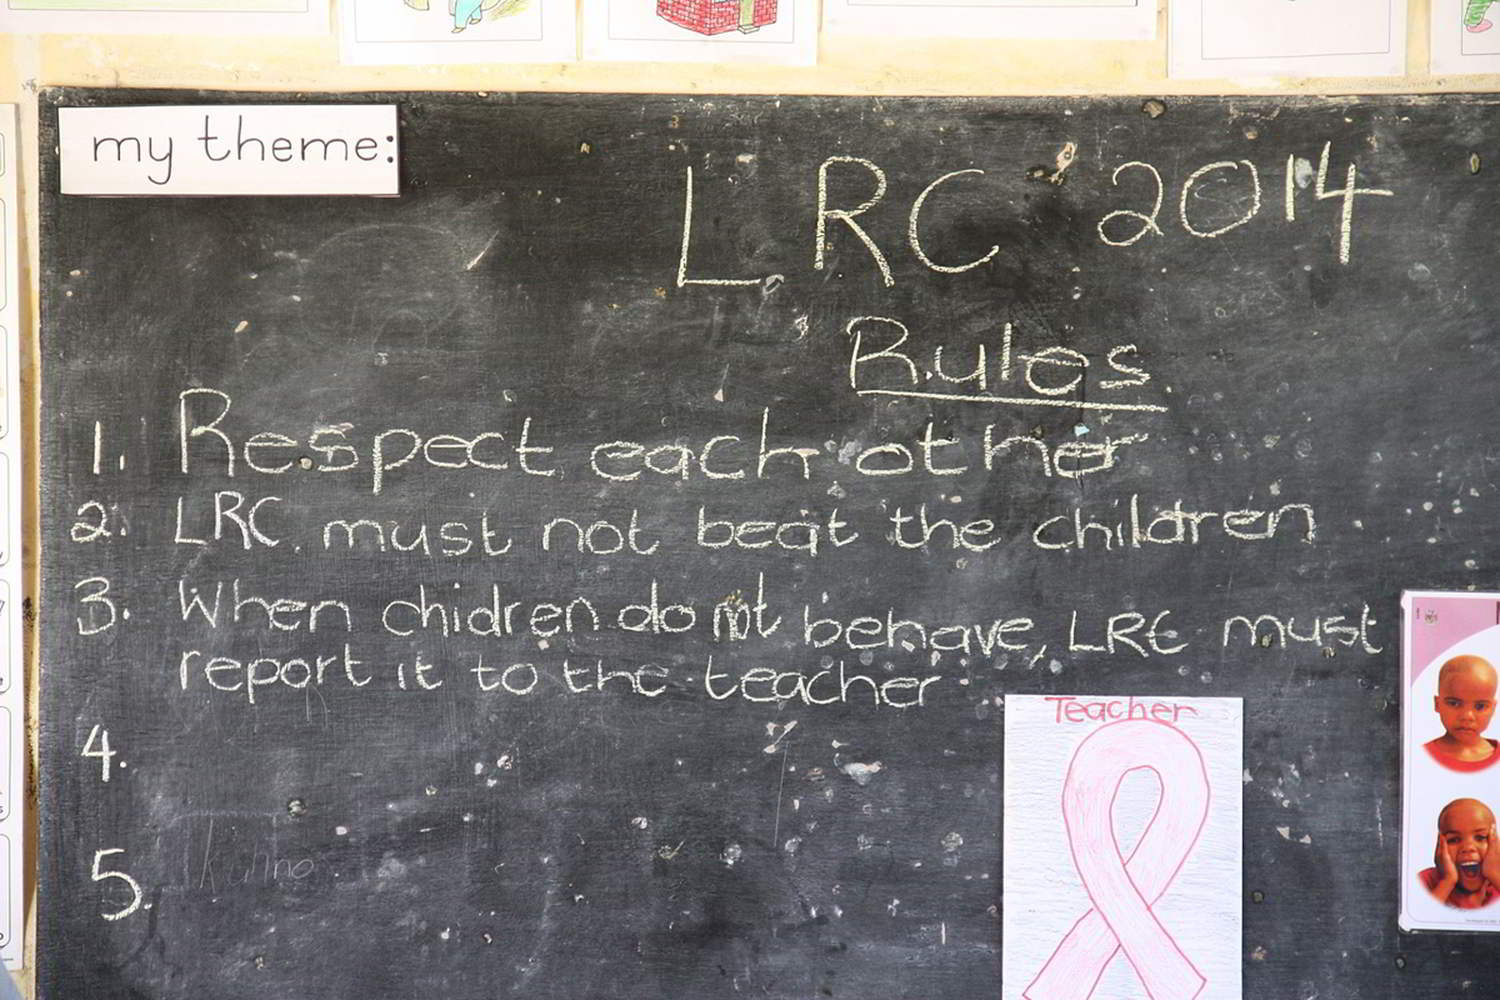 my theme:
LRC 2014
Rules
1. Respect each other
2. LRC must not beat the children
3. When chidren do not behave, LRC must
report it to the teacher
4.
5.
Teacher